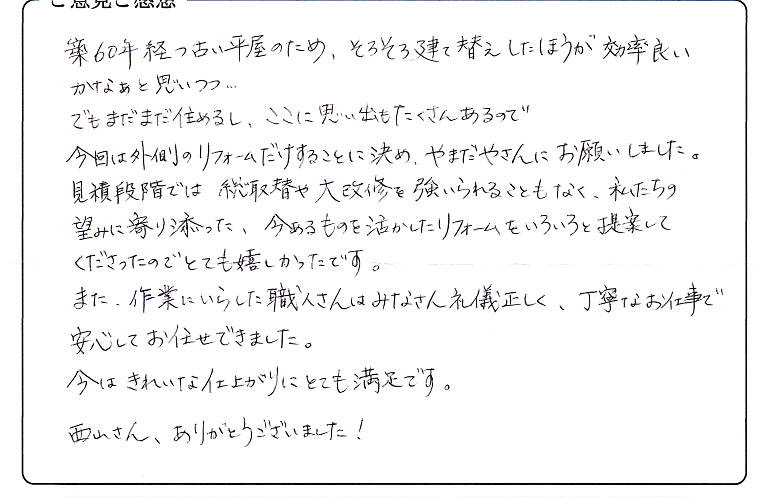 ご意見ご感想
築60年経つ古い平屋のため、そろそろ建て替えしたほうが効率良い
かなぁと思いつつ…
でもまだまだ住めるし、ここに思い出もたくさんあるので
今回は外側のリフォームだけすることに決め、やまだやさんにお願いしました。
見積段階では総取替や大改修を強いられることもなく、私たちの
望みに寄り添った、今あるものを活かしたリフォームをいろいろと提案して
くださったのでとても嬉しかったです。
また、作業にいらした職人さんはみなさん礼儀正しく、丁寧なお仕事で
安心してお任せできました。
今はきれいな仕上がりにとても満足です。
西山さん、ありがとうございました!